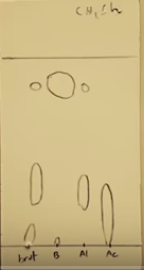 CH₂Cl₂
brut B Al Ac